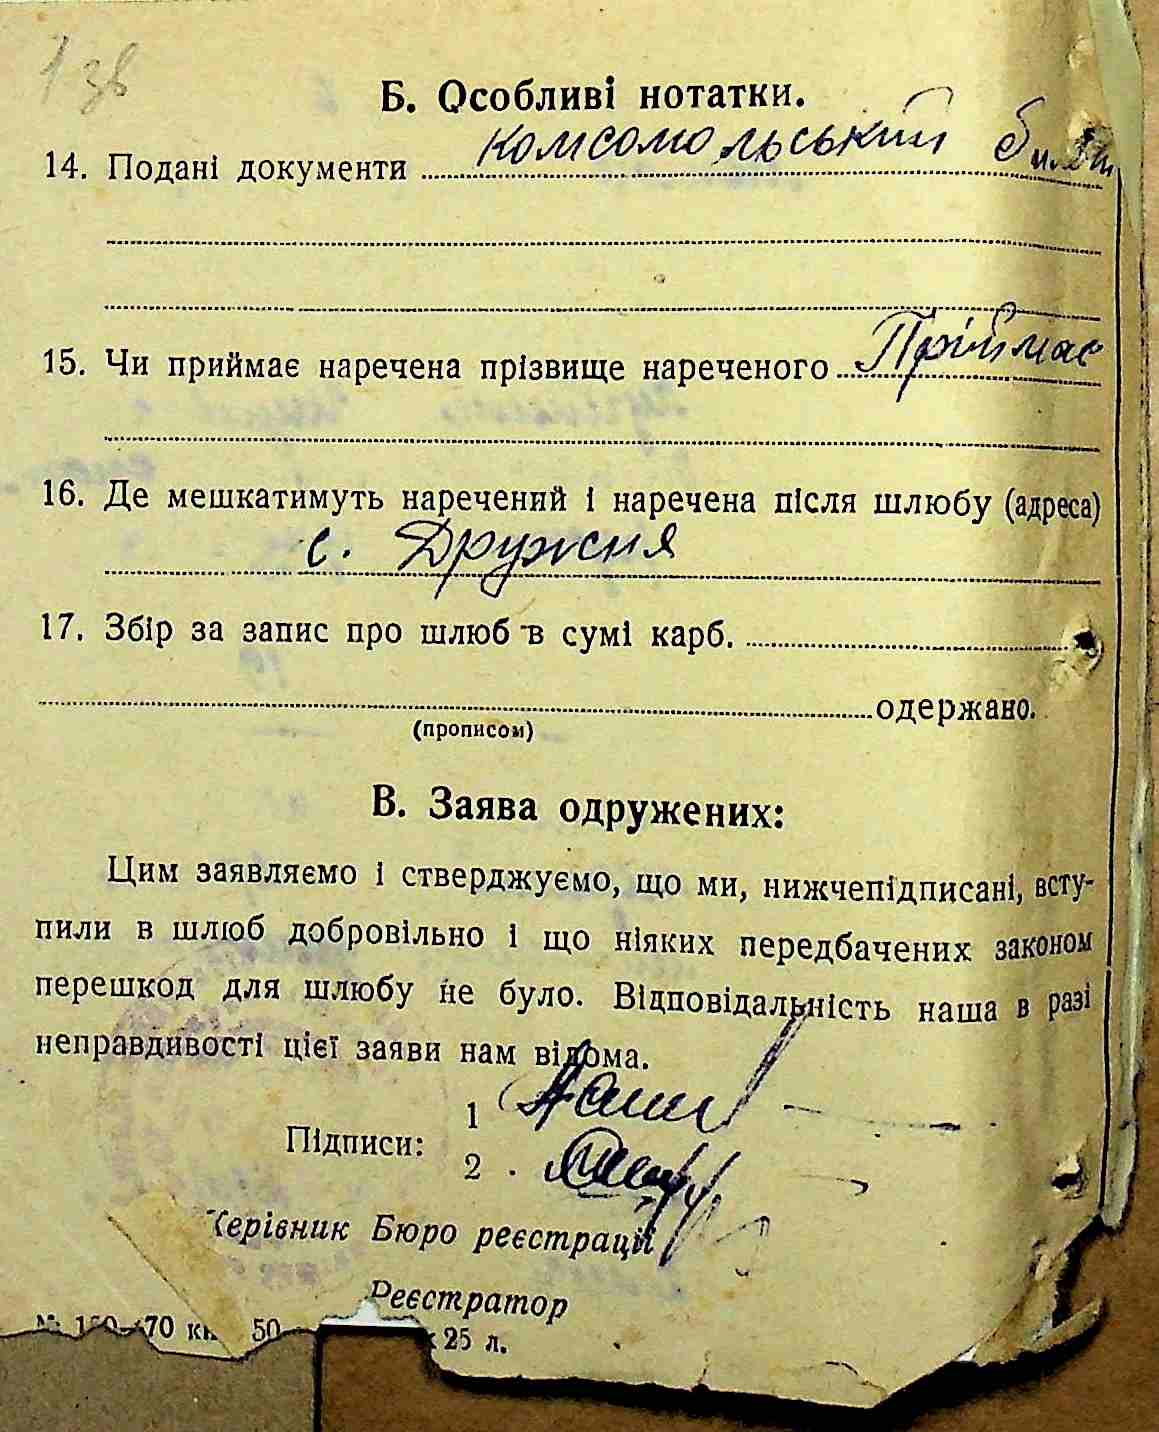 1 зв
Б. Особливі нотатки.
14. Подані документи комсомольський білет
15. Чи приймає наречена прізвище нареченого Приймає
16. Де мешкатимуть наречений і наречена після шлюбу (адреса)
с. Дружня
17. Збір за запис про шлюб в сумі карб.
одержано.
(прописом)
В. Заява одружених:
Цим заявляємо і стверджуємо, що ми, нижчепідписані, всту-
пили в шлюб добровільно і що ніяких передбачених законом
перешкод для шлюбу не було. Відповідальність наша в разі
неправдивості цієї заяви нам відома.
Підписи:
1
2
Керівник Бюро реєстрації
Реєстратор
50
25 л.